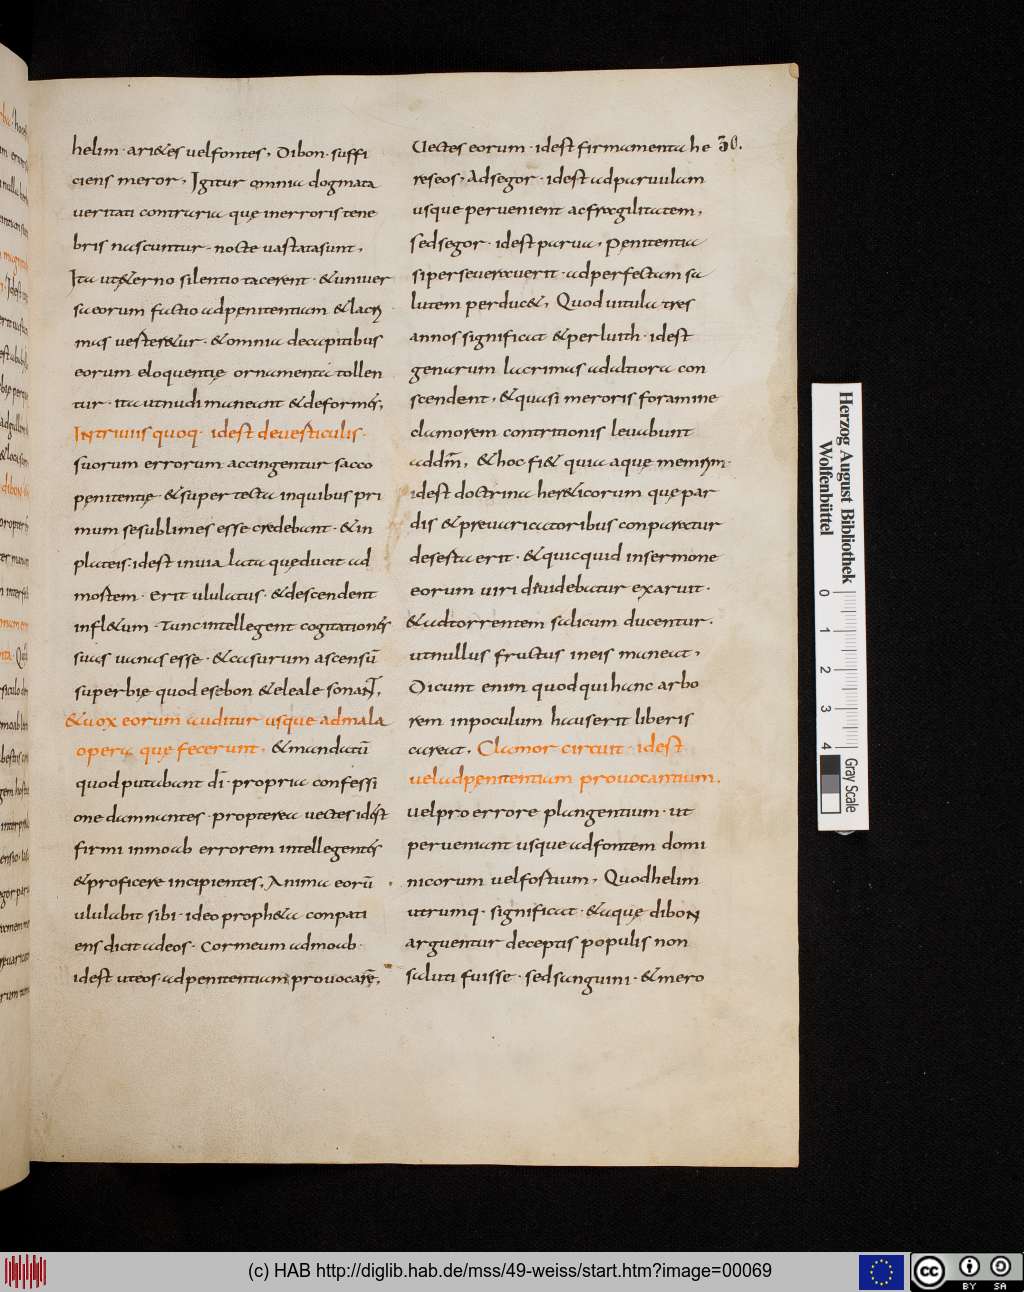 helim · ari&es uel fontes, Dibon · suffi
ciens meror, Igitur omnia dogmata
ueritati contraria quę in erroris tene
bris nascuntur · nocte uastata sunt,
Ita ut &erno silentio tacerent · & uniuer
sa eorum factio ad penitentiam & lacri
mas uester&ur · & omnia de capitibus
eorum eloquentię ornamenta tollen
tur · ita ut nudi maneant & deformes,
IN triuiis quoq · idest deuesticulis ·
suorum errorum accingentur sacco
pęnitentię · & super tecta in quibus pri
mum se sublimes esse credebant · & in
plateis · idest in uia lata quę ducit ad
mostem · erit ululatus · & descendent
in fl&um · Tunc intellegent cogitationes
suas uanas esse · & casurum ascensū
superbię quod esebon & eleale sonaNT,
& uox eorum auditur usque ad mala
opera quę fecerunt, & mandatū
quod putabant dī · propria confessi
one damnantes · propterea uectes idest
firmi in moab errorem intellegentes
& proficere incipientes, Anima eorū
ululabit sibi · ideo proph&a conpati
ens dicit ad eos · Cor meum ad moab ·
idest ut eos ad penitentiam prouocarē,
Uectes eorum · idest firmamenta he
reseos, Ad segor · idest ad paruulam
usque peruenient ac fragilitatem,
sed segor · idest parua, Penitentia
si perseuerauerit · ad perfectam sa
lutem perduc&, Quod uitula tres
annos significat & per luith · idest
genarum lacrimas ad altiora con
scendent, & quasi meroris foramine
clamorem contritionis leuabunt
ad dm̄, & hoc fi& quia aquę memrym ·
idest doctrina her&icorum quę par
dis & preuaricatoribus conparatur
deserta erit · & quicquid in sermone
eorum uiri diuidebatur exaruit ·
& ad torrentem salicum ducentur ·
ut nullus fructus in eis maneat,
Dicunt enim quod qui hanc arbo
rem in poculum hauserit liberis
careat, Clamor circuit · idest
uel ad pęnitentiam prouocantium.
uel pro errore plangentium · ut
perueniant usque ad fontem domi
nicorum uel fortium, Quod helim
utrumq · significat · & aquę diboN
arguentur deceptis populis non
saluti fuisse · sed sanguini · & mero
30.
Herzog August Bibliothek
Wolfenbüttel
0 1 2 3 4
Gray Scale
(c) HAB http://diglib.hab.de/mss/49-weiss/start.htm?image=00069
cc BY SA